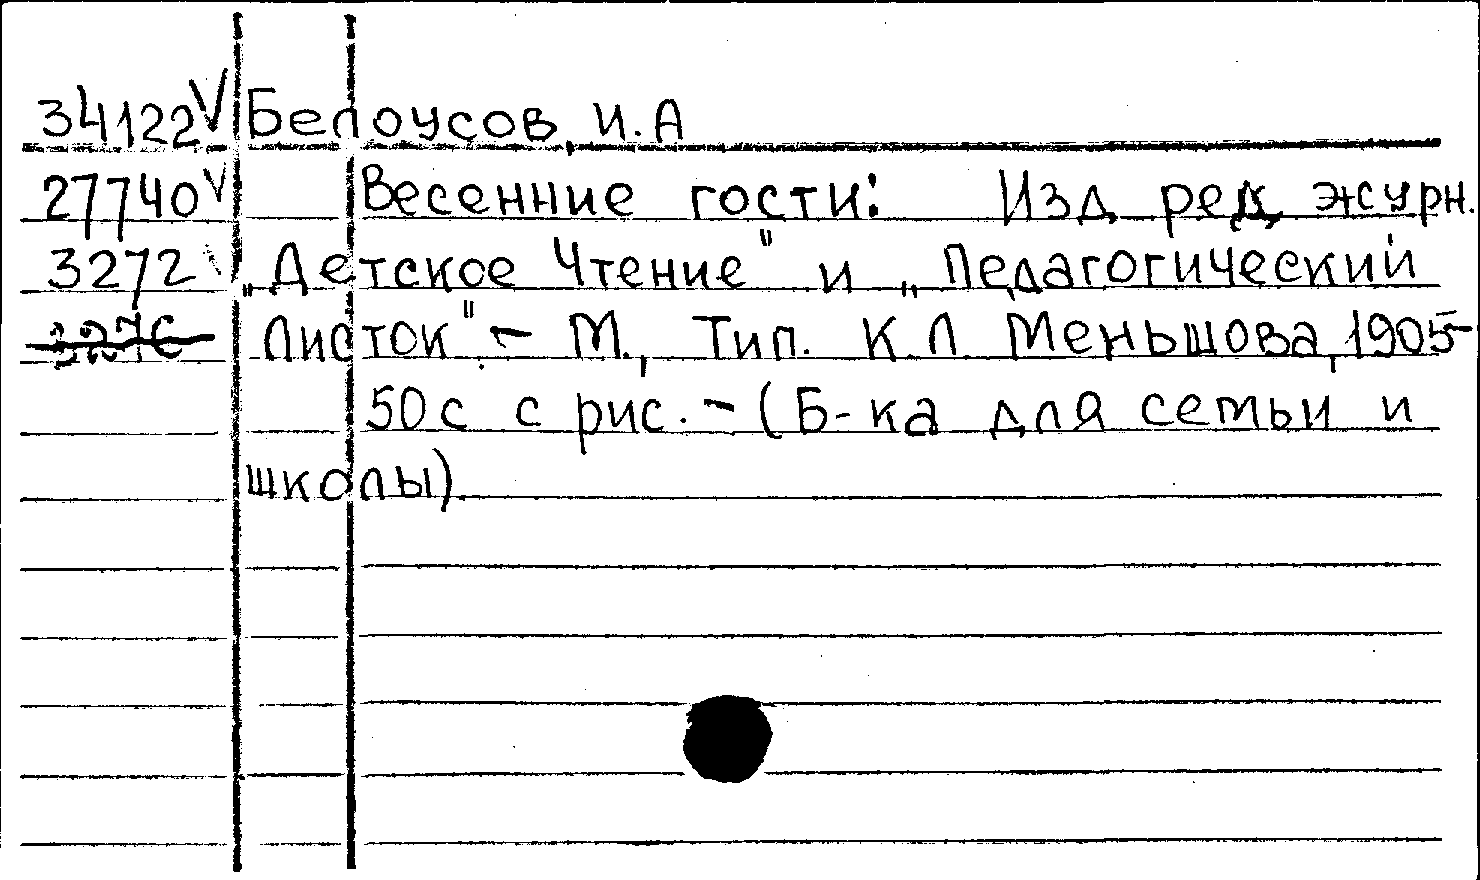 34122 V Белоусов, И.А
27740 V Весенние гости: Изд. ред. журн.
3272 V „Детское Чтение" и „Педагогический
Листок". – М., Тип. К.Л. Меньшова, 1905–
50с с рис. – (Б-ка для семьи и
школы).